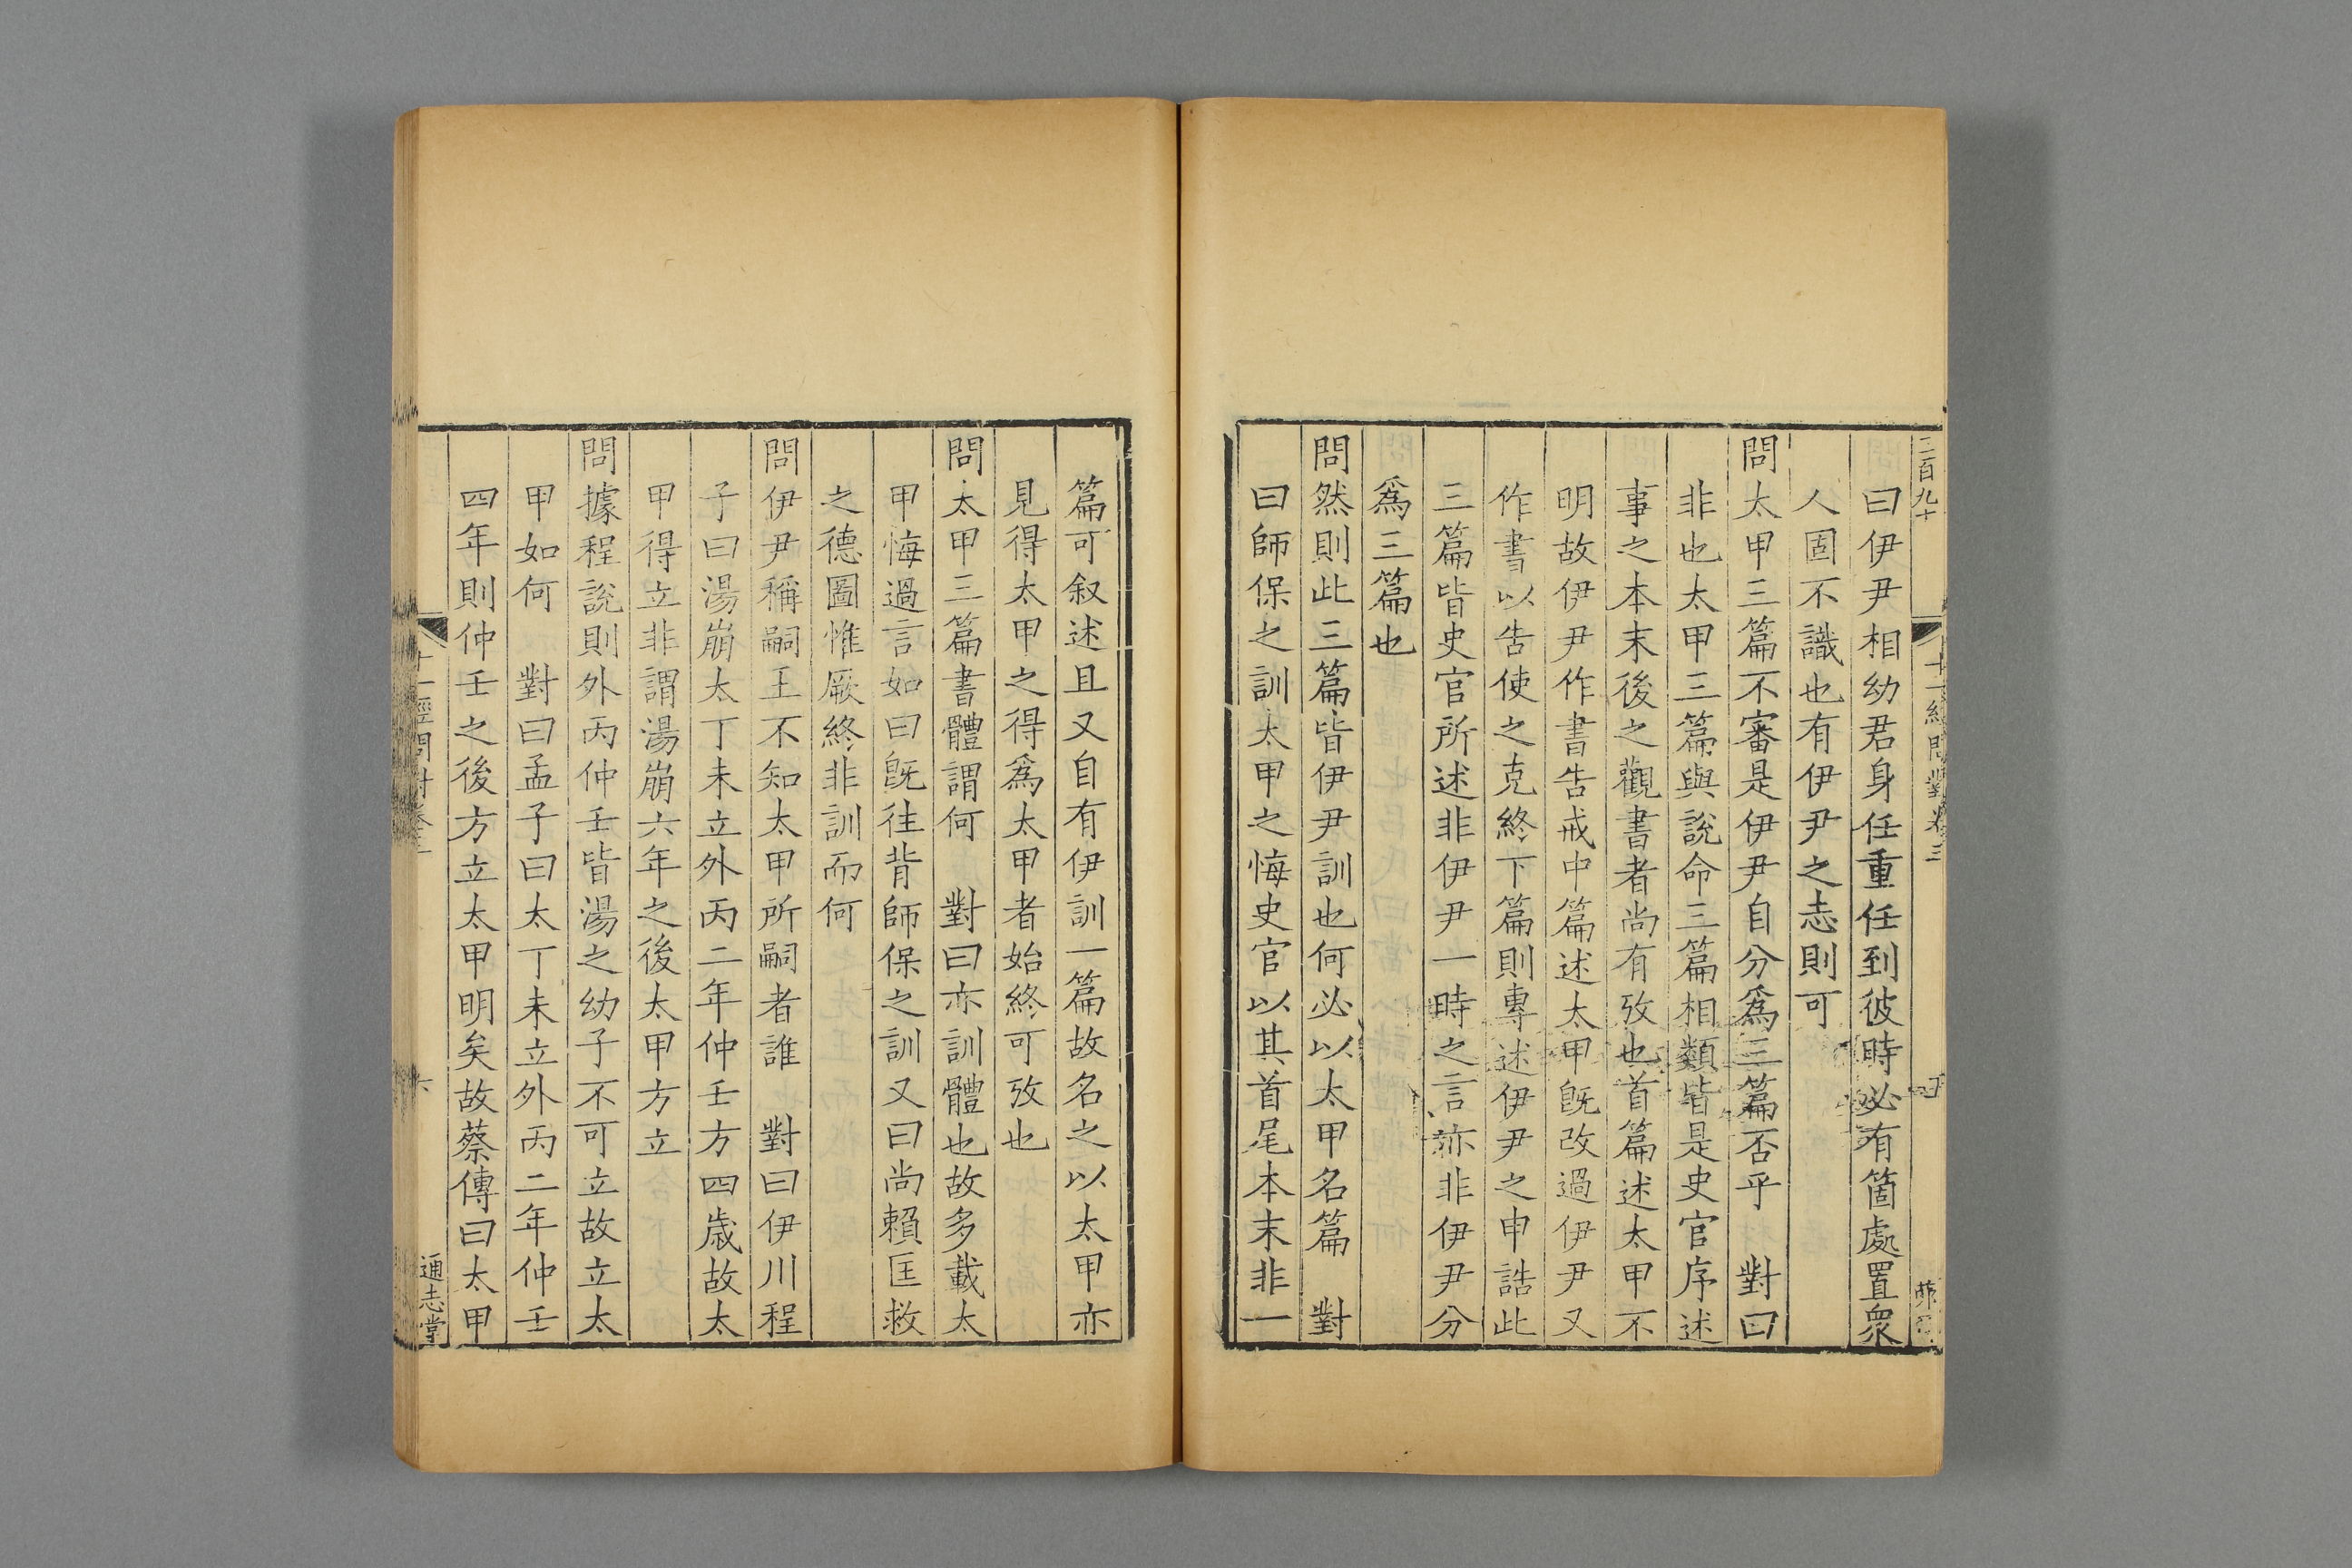 三百九十
十一經問對卷三
五
曰伊尹相幼君身任重任到彼時必有箇處置衆
人固不識也有伊尹之志則可
問太甲三篇不審是伊尹自分爲三篇否乎 對曰
非也太甲三篇與說命三篇相類皆是史官序述
事之本末後之觀書者尚有攷也首篇述太甲不
明故伊尹作書告戒中篇述太甲旣改過伊尹又
作書以告使之克終下篇則專述伊尹之申誥此
三篇皆史官所述非伊尹一時之言亦非伊尹分
爲三篇也
問然則此三篇皆伊尹訓也何必以太甲名篇 對
曰師保之訓太甲之悔史官以其首尾本末非一
篇可叙述且又自有伊訓一篇故名之以太甲亦
見得太甲之得爲太甲者始終可攷也
問太甲三篇書體謂何 對曰亦訓體也故多載太
甲悔過言如曰旣往背師保之訓又曰尚賴匡救
之德圖惟厥終非訓而何
問伊尹稱嗣王不知太甲所嗣者誰 對曰伊川程
子曰湯崩太丁未立外丙二年仲壬方四歲故太
甲得立非謂湯崩六年之後太甲方立
問據程說則外丙仲壬皆湯之幼子不可立故立太
甲如何 對曰孟子曰太丁未立外丙二年仲壬
四年則仲壬之後方立太甲明矣故蔡傳曰太甲
十一經問對卷三
六
通志堂